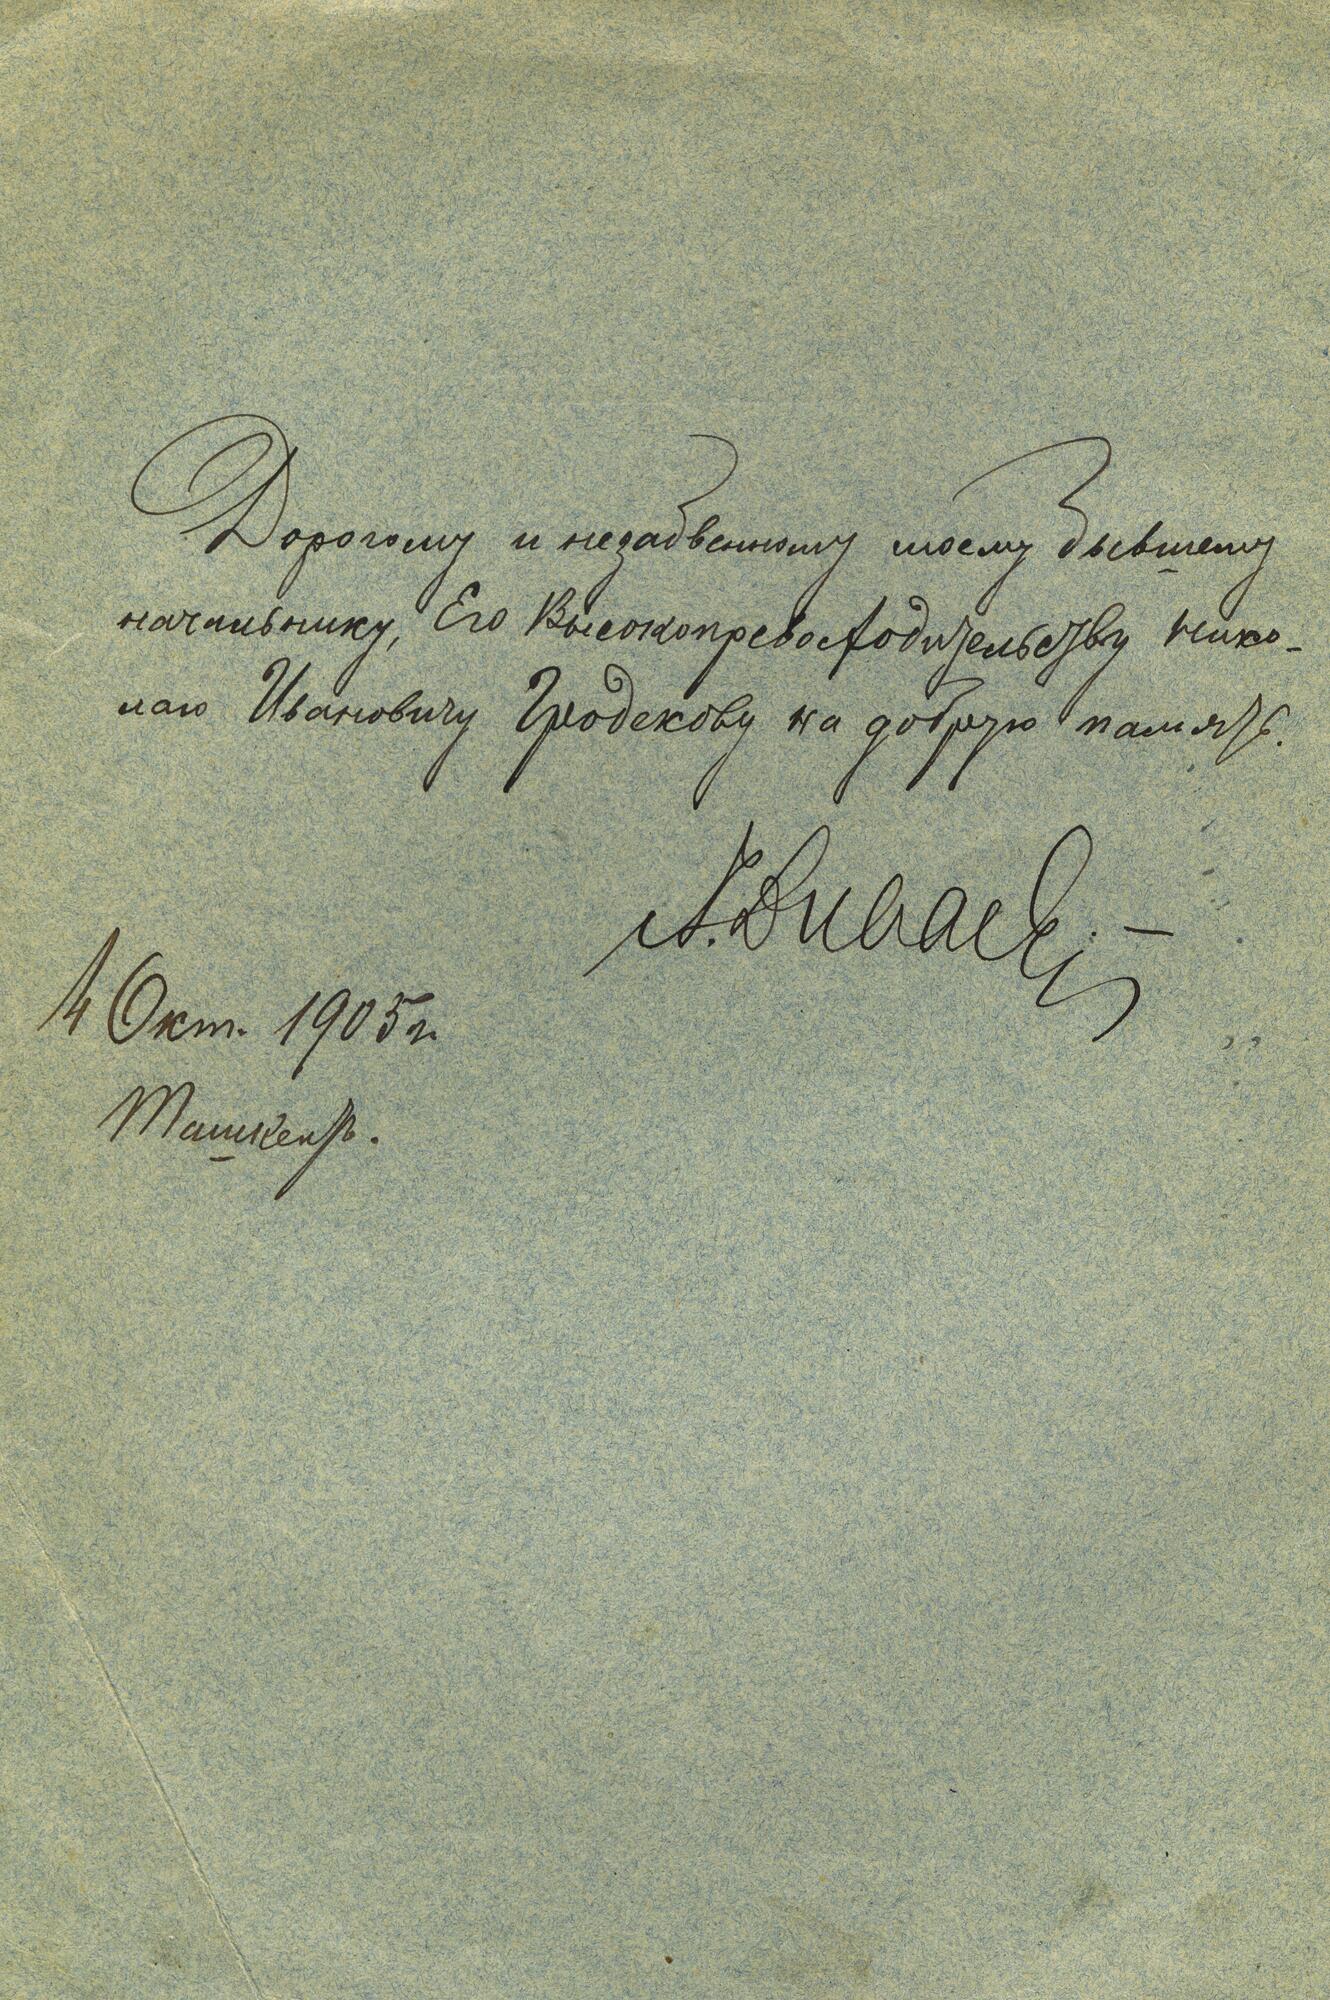 Дорогому и незабвенному моему бывшему
начальнику, Его Высокопревосходительству Нико-
лаю Ивановичу Гродекову на добрую память.
А. Диваев
4 Окт. 1905 г.
Ташкентъ.